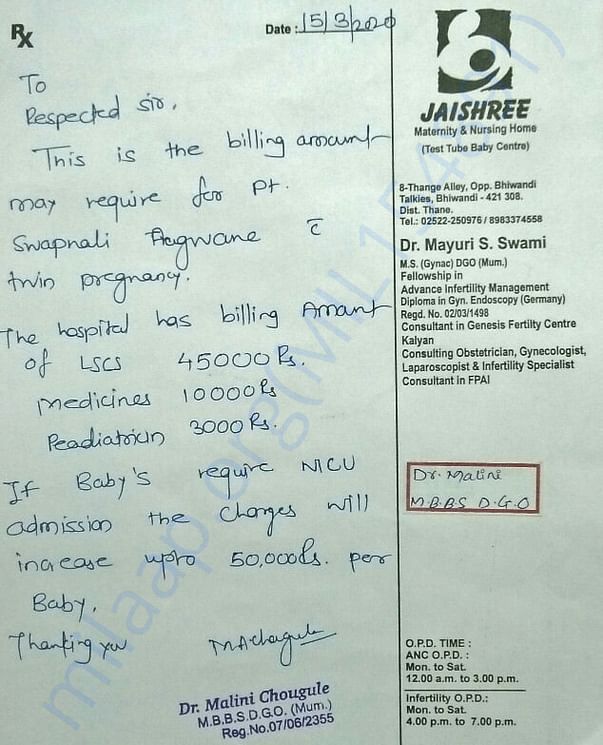 Rx
Date : 15/3/2020
To
Respected sir,
This is the billing amount
may require for pt.
Swapnali Aagwane c̄
twin pregnancy.
The hospital has billing Amant
of LSCS 45000 Rs.
Medicines 10000 Rs
Peadiatricin 3000 Rs.
If Baby's require NICU
admission the charges will
increase upto 50,000Rs. per
Baby.
Thanking you
MAChougule
Dr. Malini Chougule
M.B.B.S.D.G.O. (Mum.)
Reg.No.07/06/2355
JAISHREE
Maternity & Nursing Home
(Test Tube Baby Centre)
8-Thange Alley, Opp. Bhiwandi
Talkies, Bhiwandi - 421 308.
Dist. Thane.
Tel.: 02522-250976 / 8983374558
Dr. Mayuri S. Swami
M.S. (Gynac) DGO (Mum.)
Fellowship in
Advance Infertility Management
Diploma in Gyn. Endoscopy (Germany)
Regd. No. 02/03/1498
Consultant in Genesis Fertilty Centre
Kalyan
Consulting Obstetrician, Gynecologist,
Laparoscopist & Infertility Specialist
Consultant in FPAI
Dr. Malini
M.B.B.S D.G.O
O.P.D. TIME :
ANC O.P.D. :
Mon. to Sat.
12.00 a.m. to 3.00 p.m.
Infertility O.P.D.:
Mon. to Sat.
4.00 p.m. to 7.00 p.m.